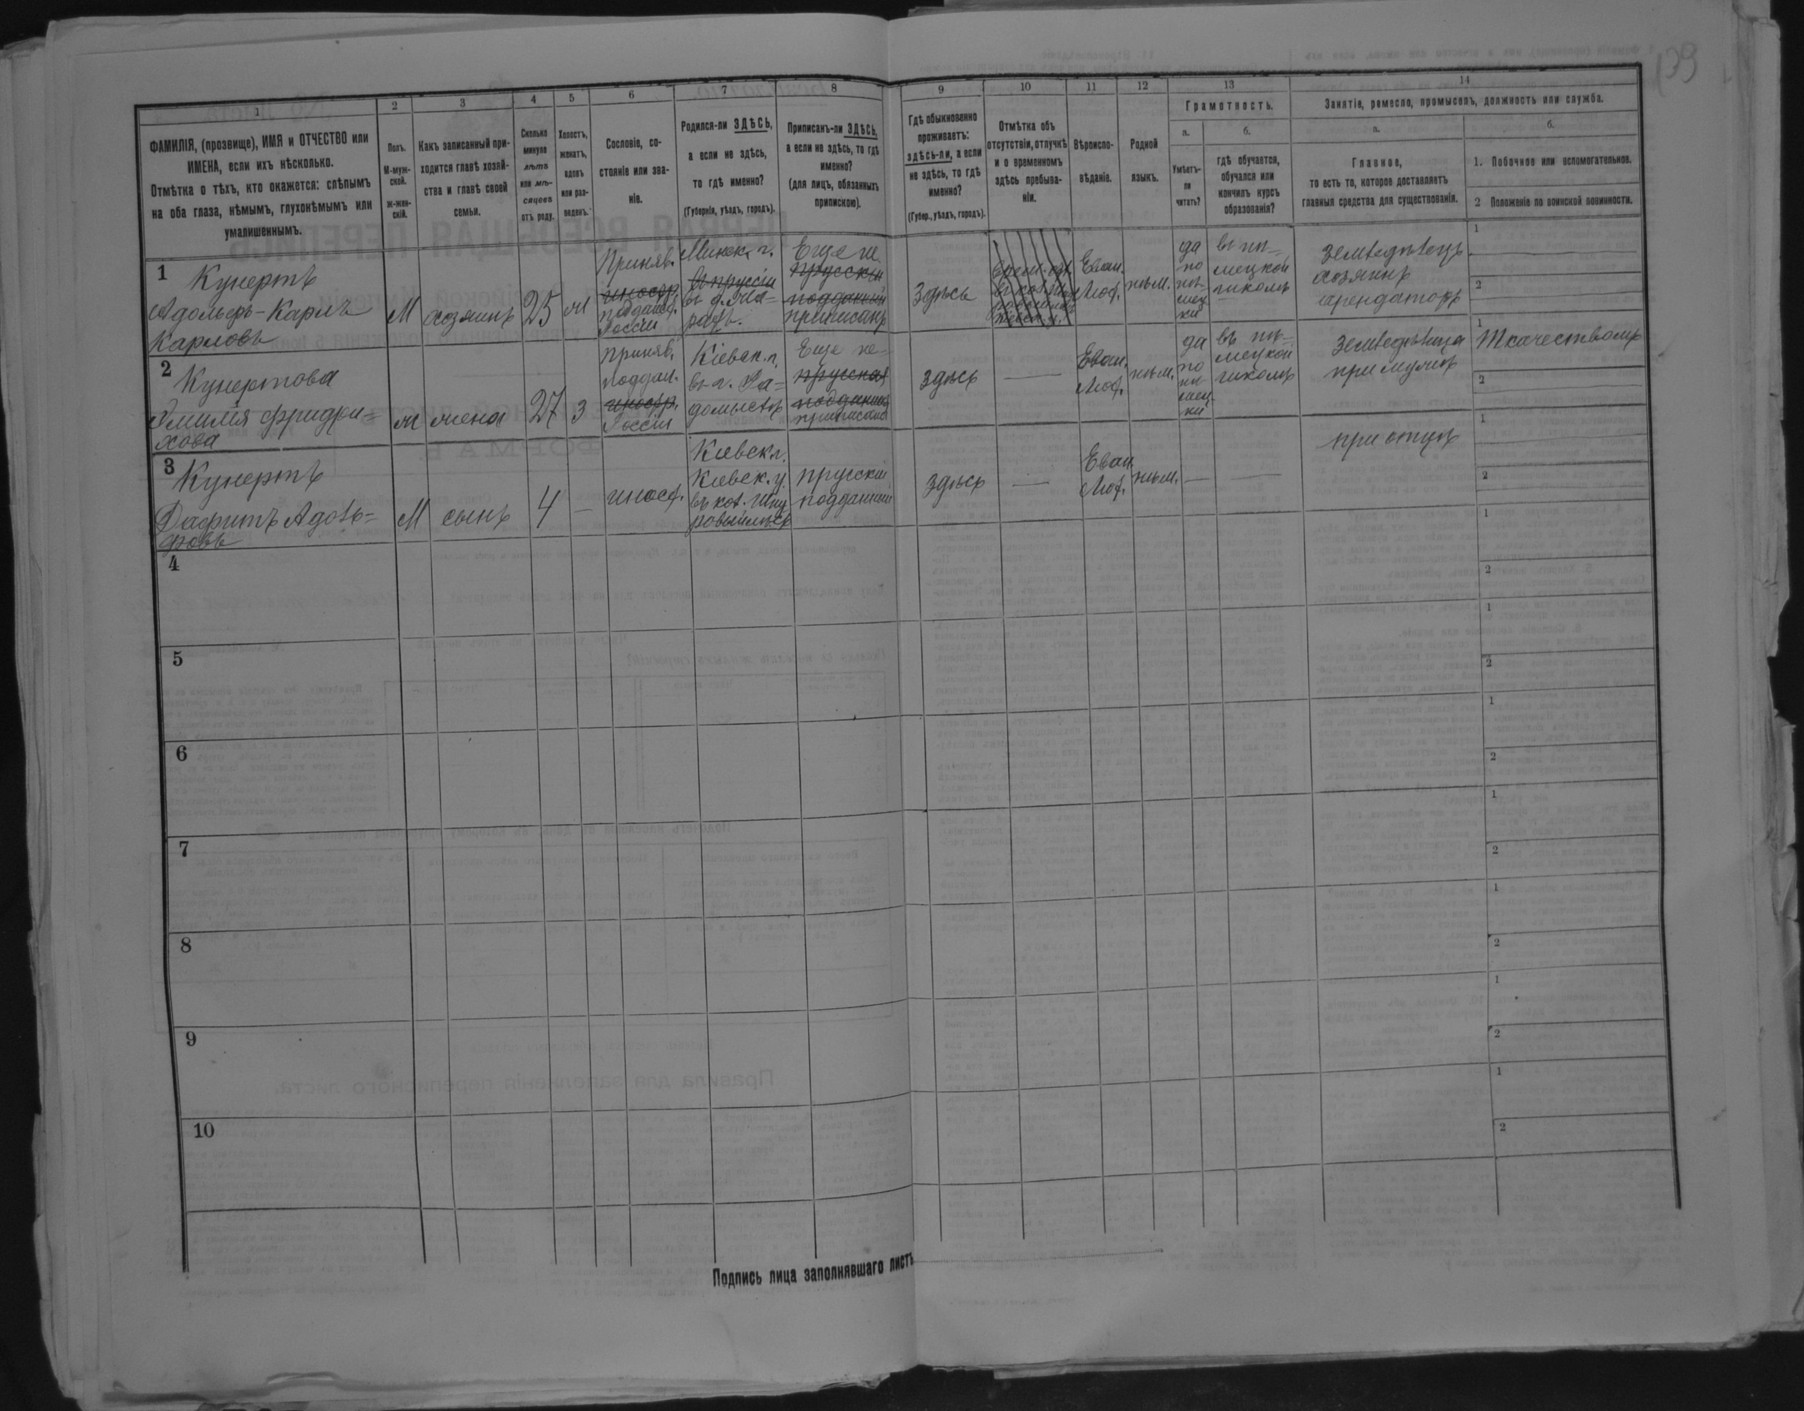 139
1
ФАМИЛІЯ, (прозвище), ИМЯ и ОТЧЕСТВО или
ИМЕНА, если ихъ нѣсколько.
Отмѣтка о тѣхъ, кто окажется: слѣпымъ
на оба глаза, нѣмымъ, глухонѣмымъ или
умалишеннымъ.
2
Полъ.
М-муж-
ской.
Ж-жен-
скій.
3
Какъ записанный при-
ходится главѣ хозяй-
ства и главѣ своей
семьи.
4
Сколько
минуло
лѣтъ
или мѣ-
сяцевъ
отъ роду.
5
Холостъ,
женатъ,
вдовъ
или раз-
веденъ.
6
Сословіе, со-
стояніе или зва-
ніе.
7
Родился-ли ЗДѢСЬ,
а если не здѣсь,
то гдѣ именно?
(Губернія, уѣздъ, городъ).
8
Приписанъ-ли ЗДѢСЬ,
а если не здѣсь, то гдѣ
именно?
(для лицъ, обязанныхъ
припискою).
9
Гдѣ обыкновенно
проживаетъ:
здѣсь-ли, а если
не здѣсь, то гдѣ
именно?
(Губер., уѣздъ, городъ).
10
Отмѣтка объ
отсутствіи, отлучкѣ
и о временномъ
здѣсь пребыва-
ніи.
11
Вѣроиспо-
вѣданіе.
12
Родной
языкъ.
13
Грамотность.
а.
Умѣетъ-
ли
читать?
б.
гдѣ обучается,
обучался или
кончилъ курсъ
образованія?
14
Занятіе, ремесло, промыселъ, должность или служба.
а.
Главное,
то есть то, которое доставляетъ
главныя средства для существованія.
б.
1. Побочное или вспомогательное.
2 Положеніе по воинской повинности.
1
Кунертъ
Адольфъ-Карлъ
Карловъ
М
хозяинъ
25
ж
Приняв.
иностр.
поддан.
Россіи
Минск. г.
въ Пруссіи
Еще не
прусскій
подданный
приписанъ
здѣсь
Еван.
Лют.
нѣм.
да
по
нѣ-
мец-
ки
въ нѣ-
мецкой
школѣ
земледѣлецъ
хозяинъ
арендаторъ
1
2
2
Кунертова
Эмилія Фридри-
хова
ж
жена
27
з
приняв.
поддан.
иностр.
Россіи
Кіевск. г.
Еще не
прусская
подданная
приписана
здѣсь
Еван.
Лют.
нѣм.
да
по
нѣ-
мец-
ки
въ нѣ-
мецкой
школѣ
земледѣлица
при мужѣ
1
Ткачествомъ
2
3
Кунертъ
Дафитъ Адоль-
фовъ
М
сынъ
4
иност.
Кіевск. г.
Кіевск. у.
прусскій
подданный
здѣсь
Еван.
Лют.
нѣм.
при отцѣ
1
2
4
1
2
5
1
2
6
1
2
7
1
2
8
1
2
9
1
2
10
1
2
Подпись лица заполнявшаго листъ